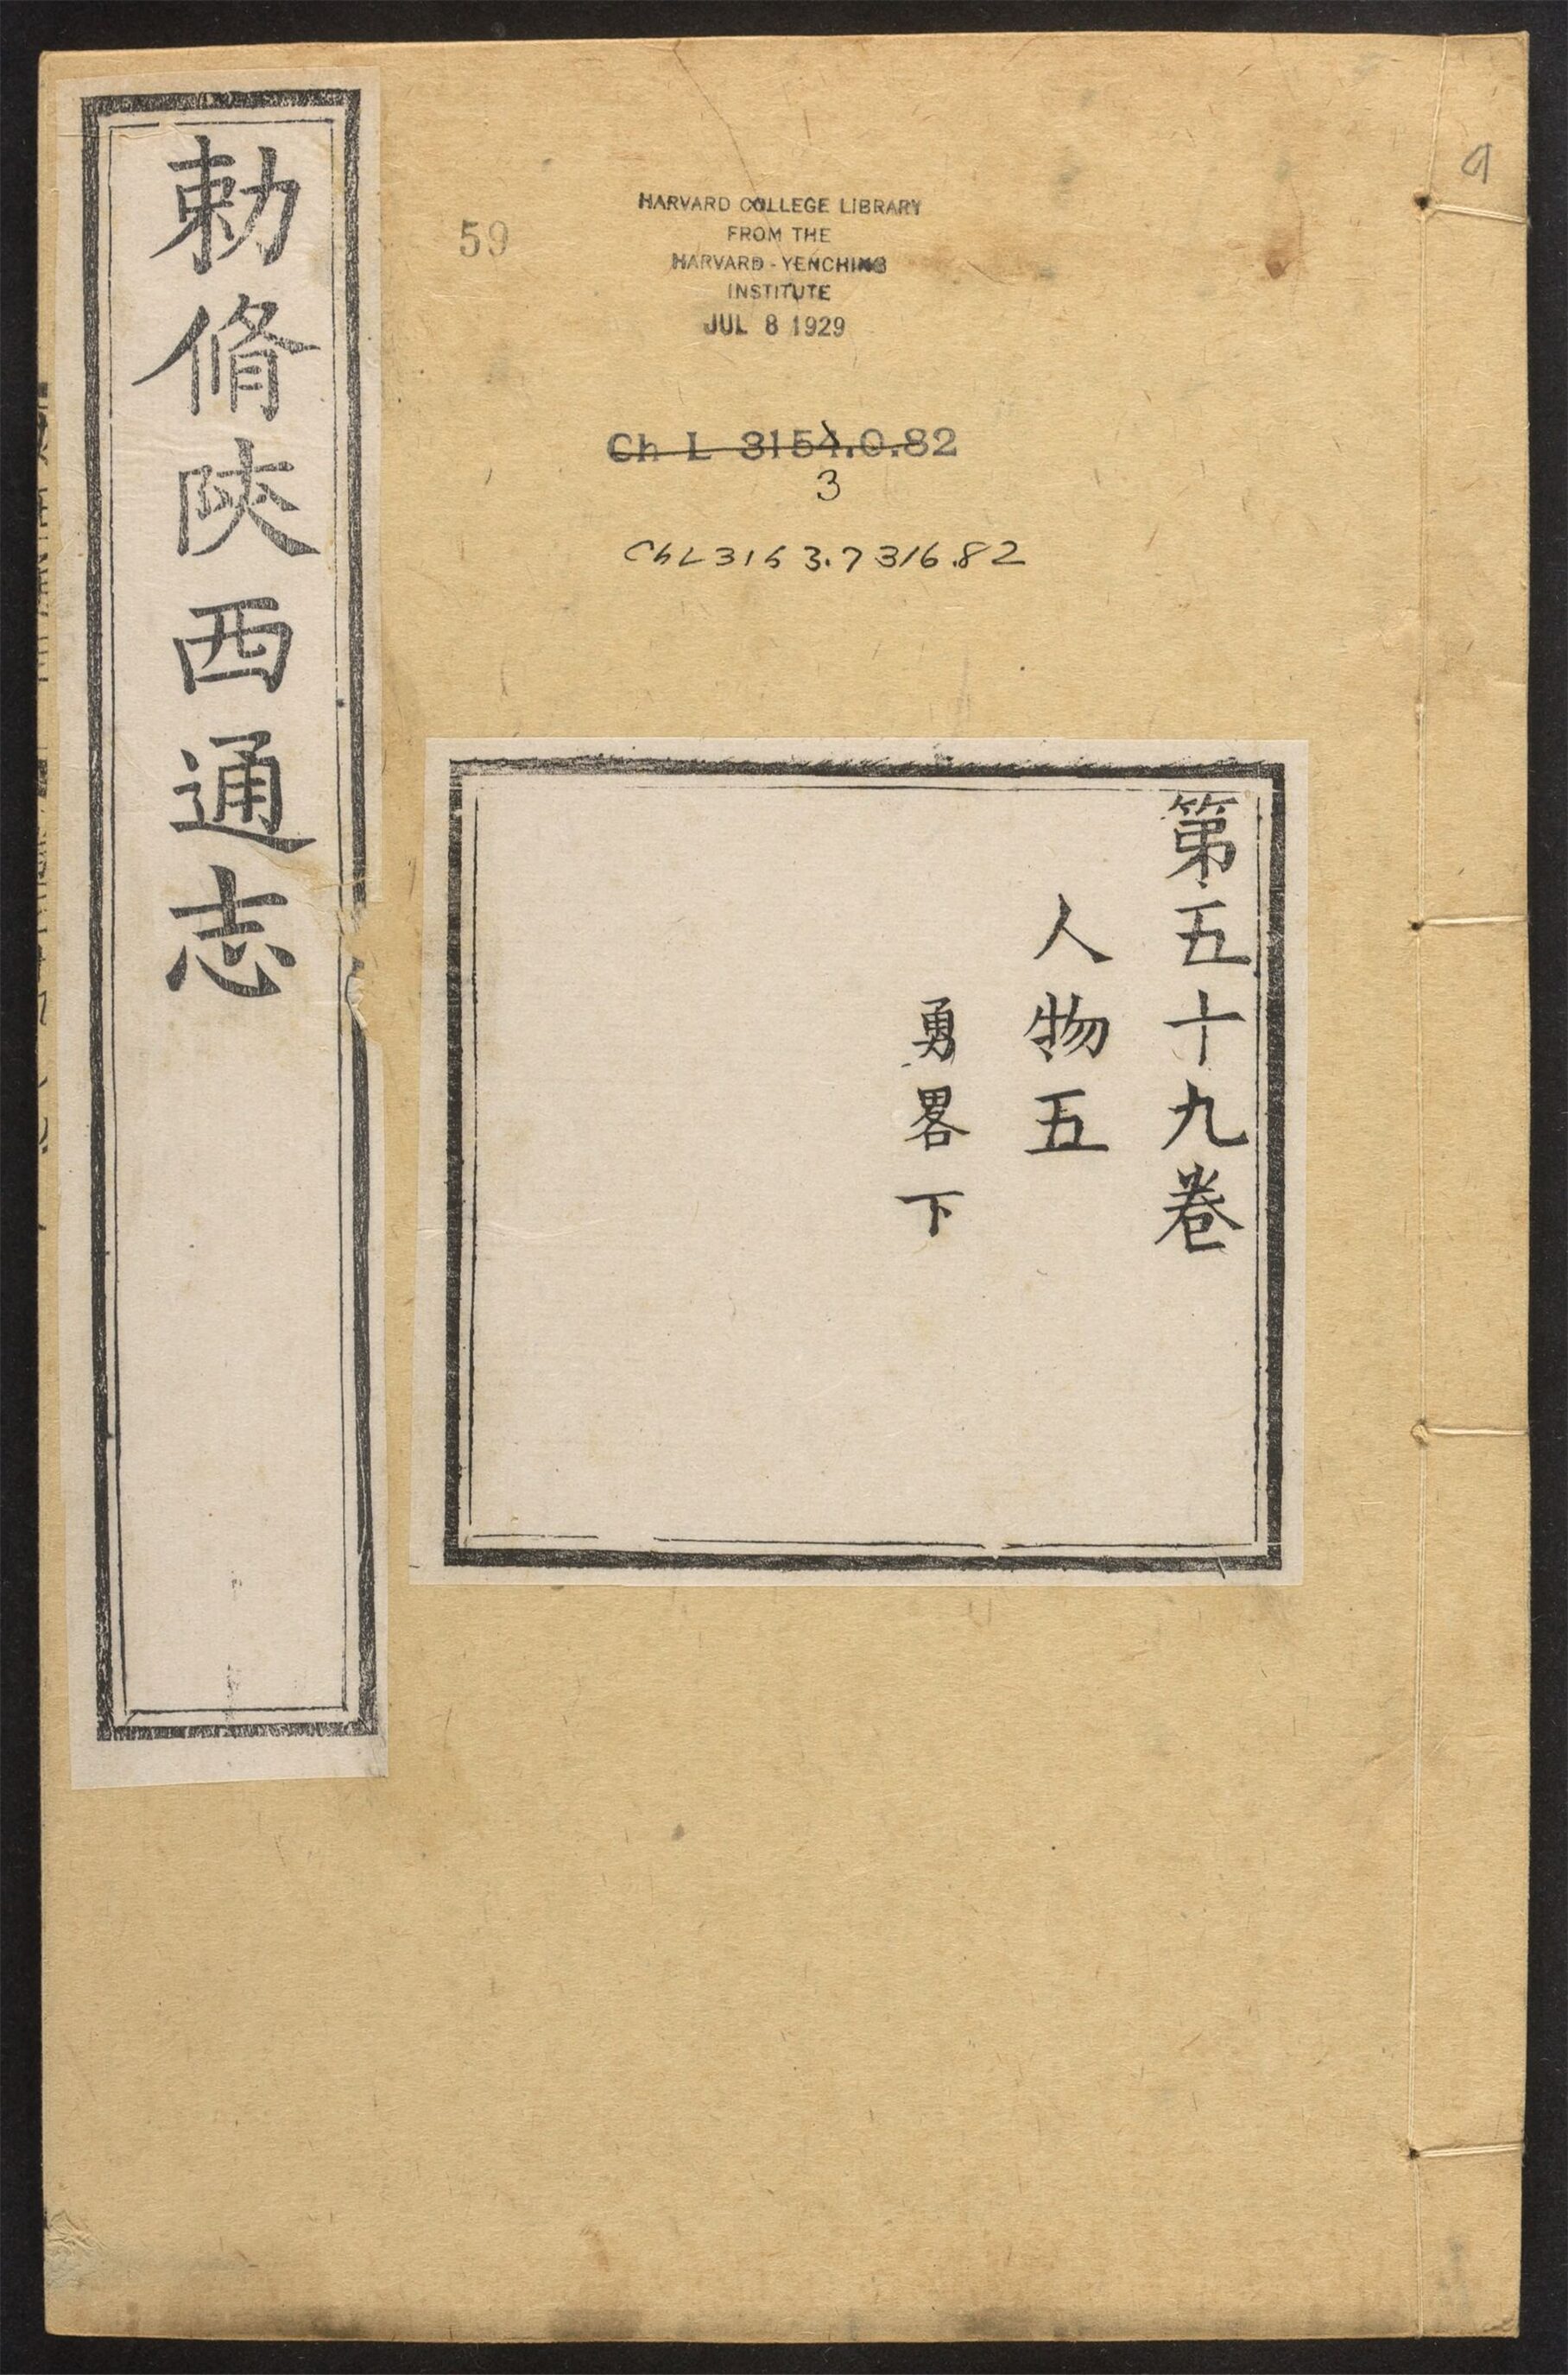 勅脩陝西通志
59
HARVARD COLLEGE LIBRARY
FROM THE
HARVARD-YENCHING
INSTITUTE
JUL 8 1929
Ch L 3154.0.82
3
ChL3153.7316.82
9
第五十九卷
人物五
勇畧下